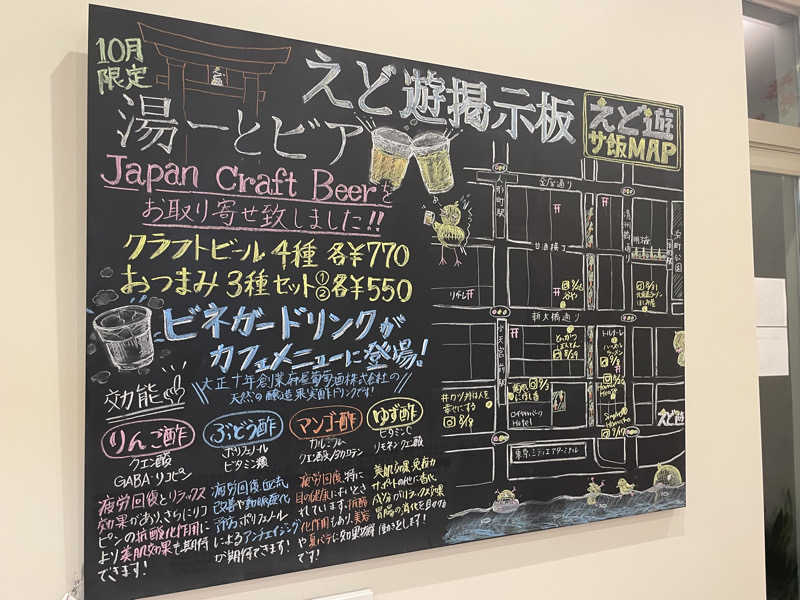 10月
限定
えど遊掲示板
湯ーとビア
Japan Craft Beerを
お取り寄せ致しました!!
クラフトビール 4種 各¥770
おつまみ 3種セット①②各¥550
ビネガードリンクが
カフェメニューに登場!
大正十年創業
株式会社の
天然の醸造果実酢ドリンクです!
効能
りんご酢
クエン酸
GABA・リコピン
疲労回復とリラックス
効果があり、さらにリコ
ピンの抗酸化作用に
より美肌効果も期待
できます!
ぶどう酢
ポリフェノール
ビタミン類
疲労回復、血流
改善や動脈硬化
予防、ポリフェノール
によるアンチエイジング
が期待できます!
マンゴ酢
カルシウム
クエン酸
疲労回復、特に
目の健康に
されています。抗酸
化作用もあり、美容
や夏バテに効果
です!
ゆず酢
ビタミンC
リモネン クエン酸
美肌効果、免疫力
サポートの他にも
がリラックス効果
胃腸の消化を助ける
働きをします!
えど遊
サ飯MAP
金座通り
人形町駅
甘酒横丁
清洲橋通り
浜町公園
新大橋通り
水天宮前駅
トルナーレ
8/29
9/17
8/18
Hotel
東京シティエアターミナル
えど遊